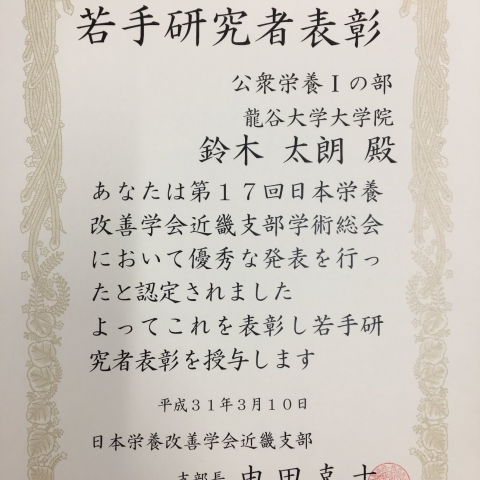 若手研究者表彰
公衆栄養Ⅰの部
龍谷大学大学院
鈴木 太朗 殿
あなたは第17回日本栄養
改善学会近畿支部学術総会
において優秀な発表を行っ
たと認定されました
よってこれを表彰し若手研
究者表彰を授与します
平成31年3月10日
日本栄養改善学会近畿支部
支部長